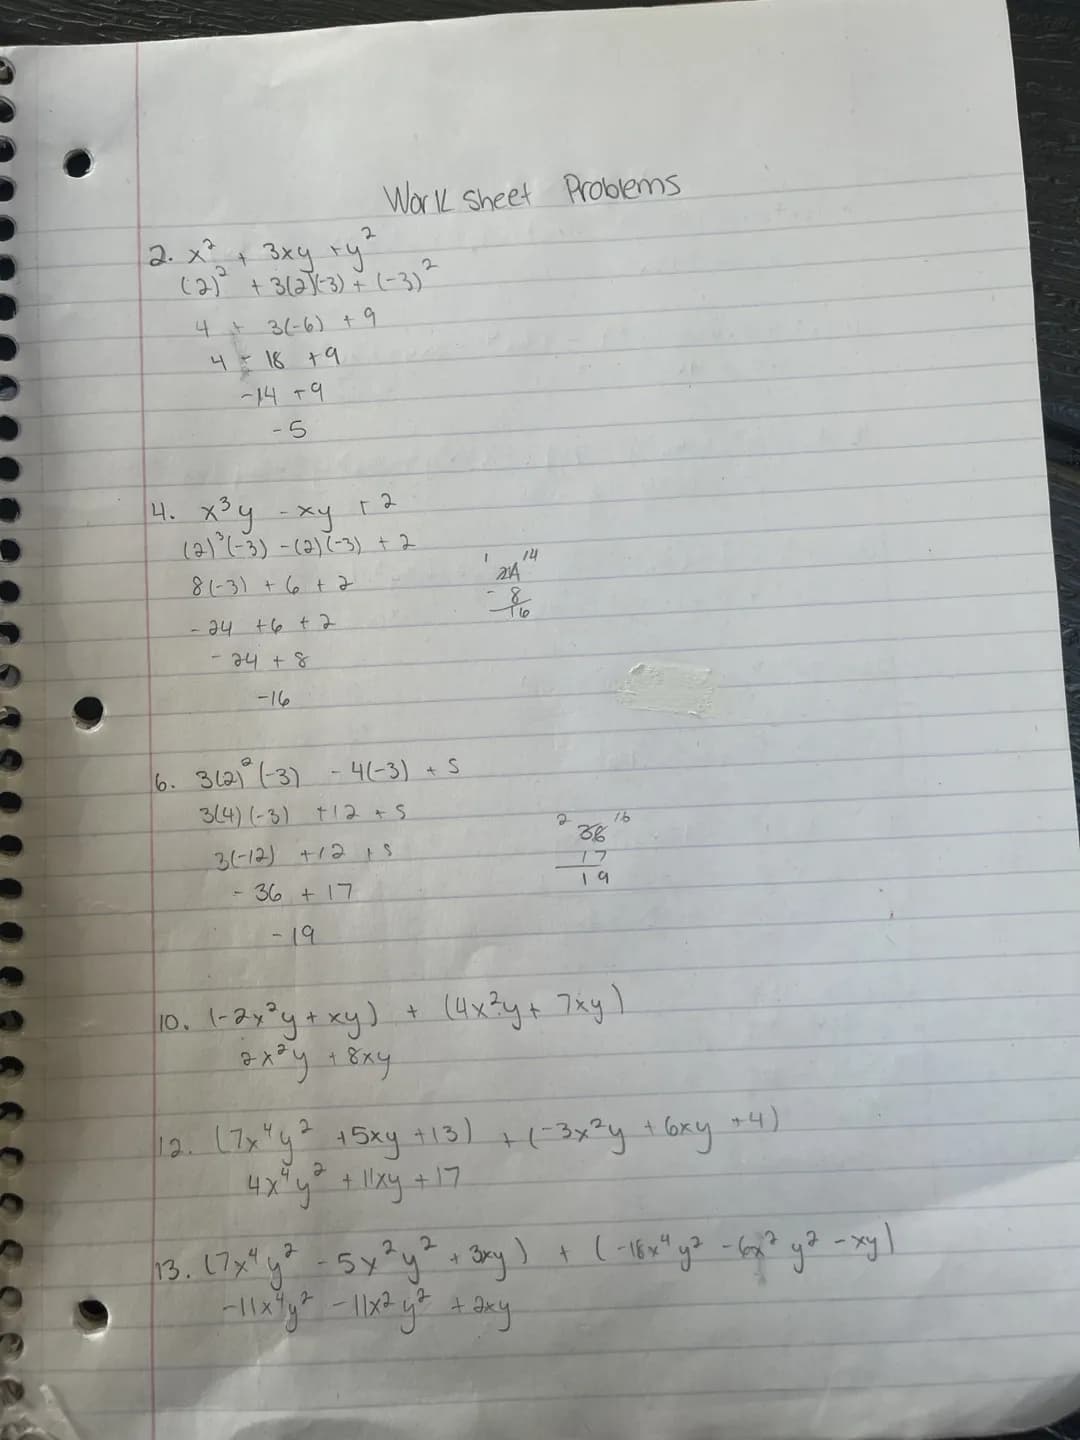 Work sheet Problems
2. x² + 3xy + y²
(2)² + 3(2)(-3) + (-3)²
4 + 3(-6) + 9
4 - 18 + 9
-14 + 9
-5
4. x³y - xy + 2
(2)³(-3) - (2)(-3) + 2
8(-3) + 6 + 2
1 24 14
- 24 + 6 + 2
- 8
16
- 24 + 8
-16
6. 3(2)²(-3) - 4(-3) + 5
3(4)(-3) + 12 + 5
2 36 16
3(-12) + 12 + 5
17
19
- 36 + 17
- 19
10. (-2x²y + xy) + (4x²y + 7xy)
2x²y + 8xy
12. (7x⁴y² + 5xy + 13) + (-3x²y + 6xy + 4)
4x⁴y² + 11xy + 17
13. (7x⁴y² - 5x²y² + 3xy) + (-18x⁴y² - 6x²y² - xy)
-11x⁴y² - 11x²y² + 2xy